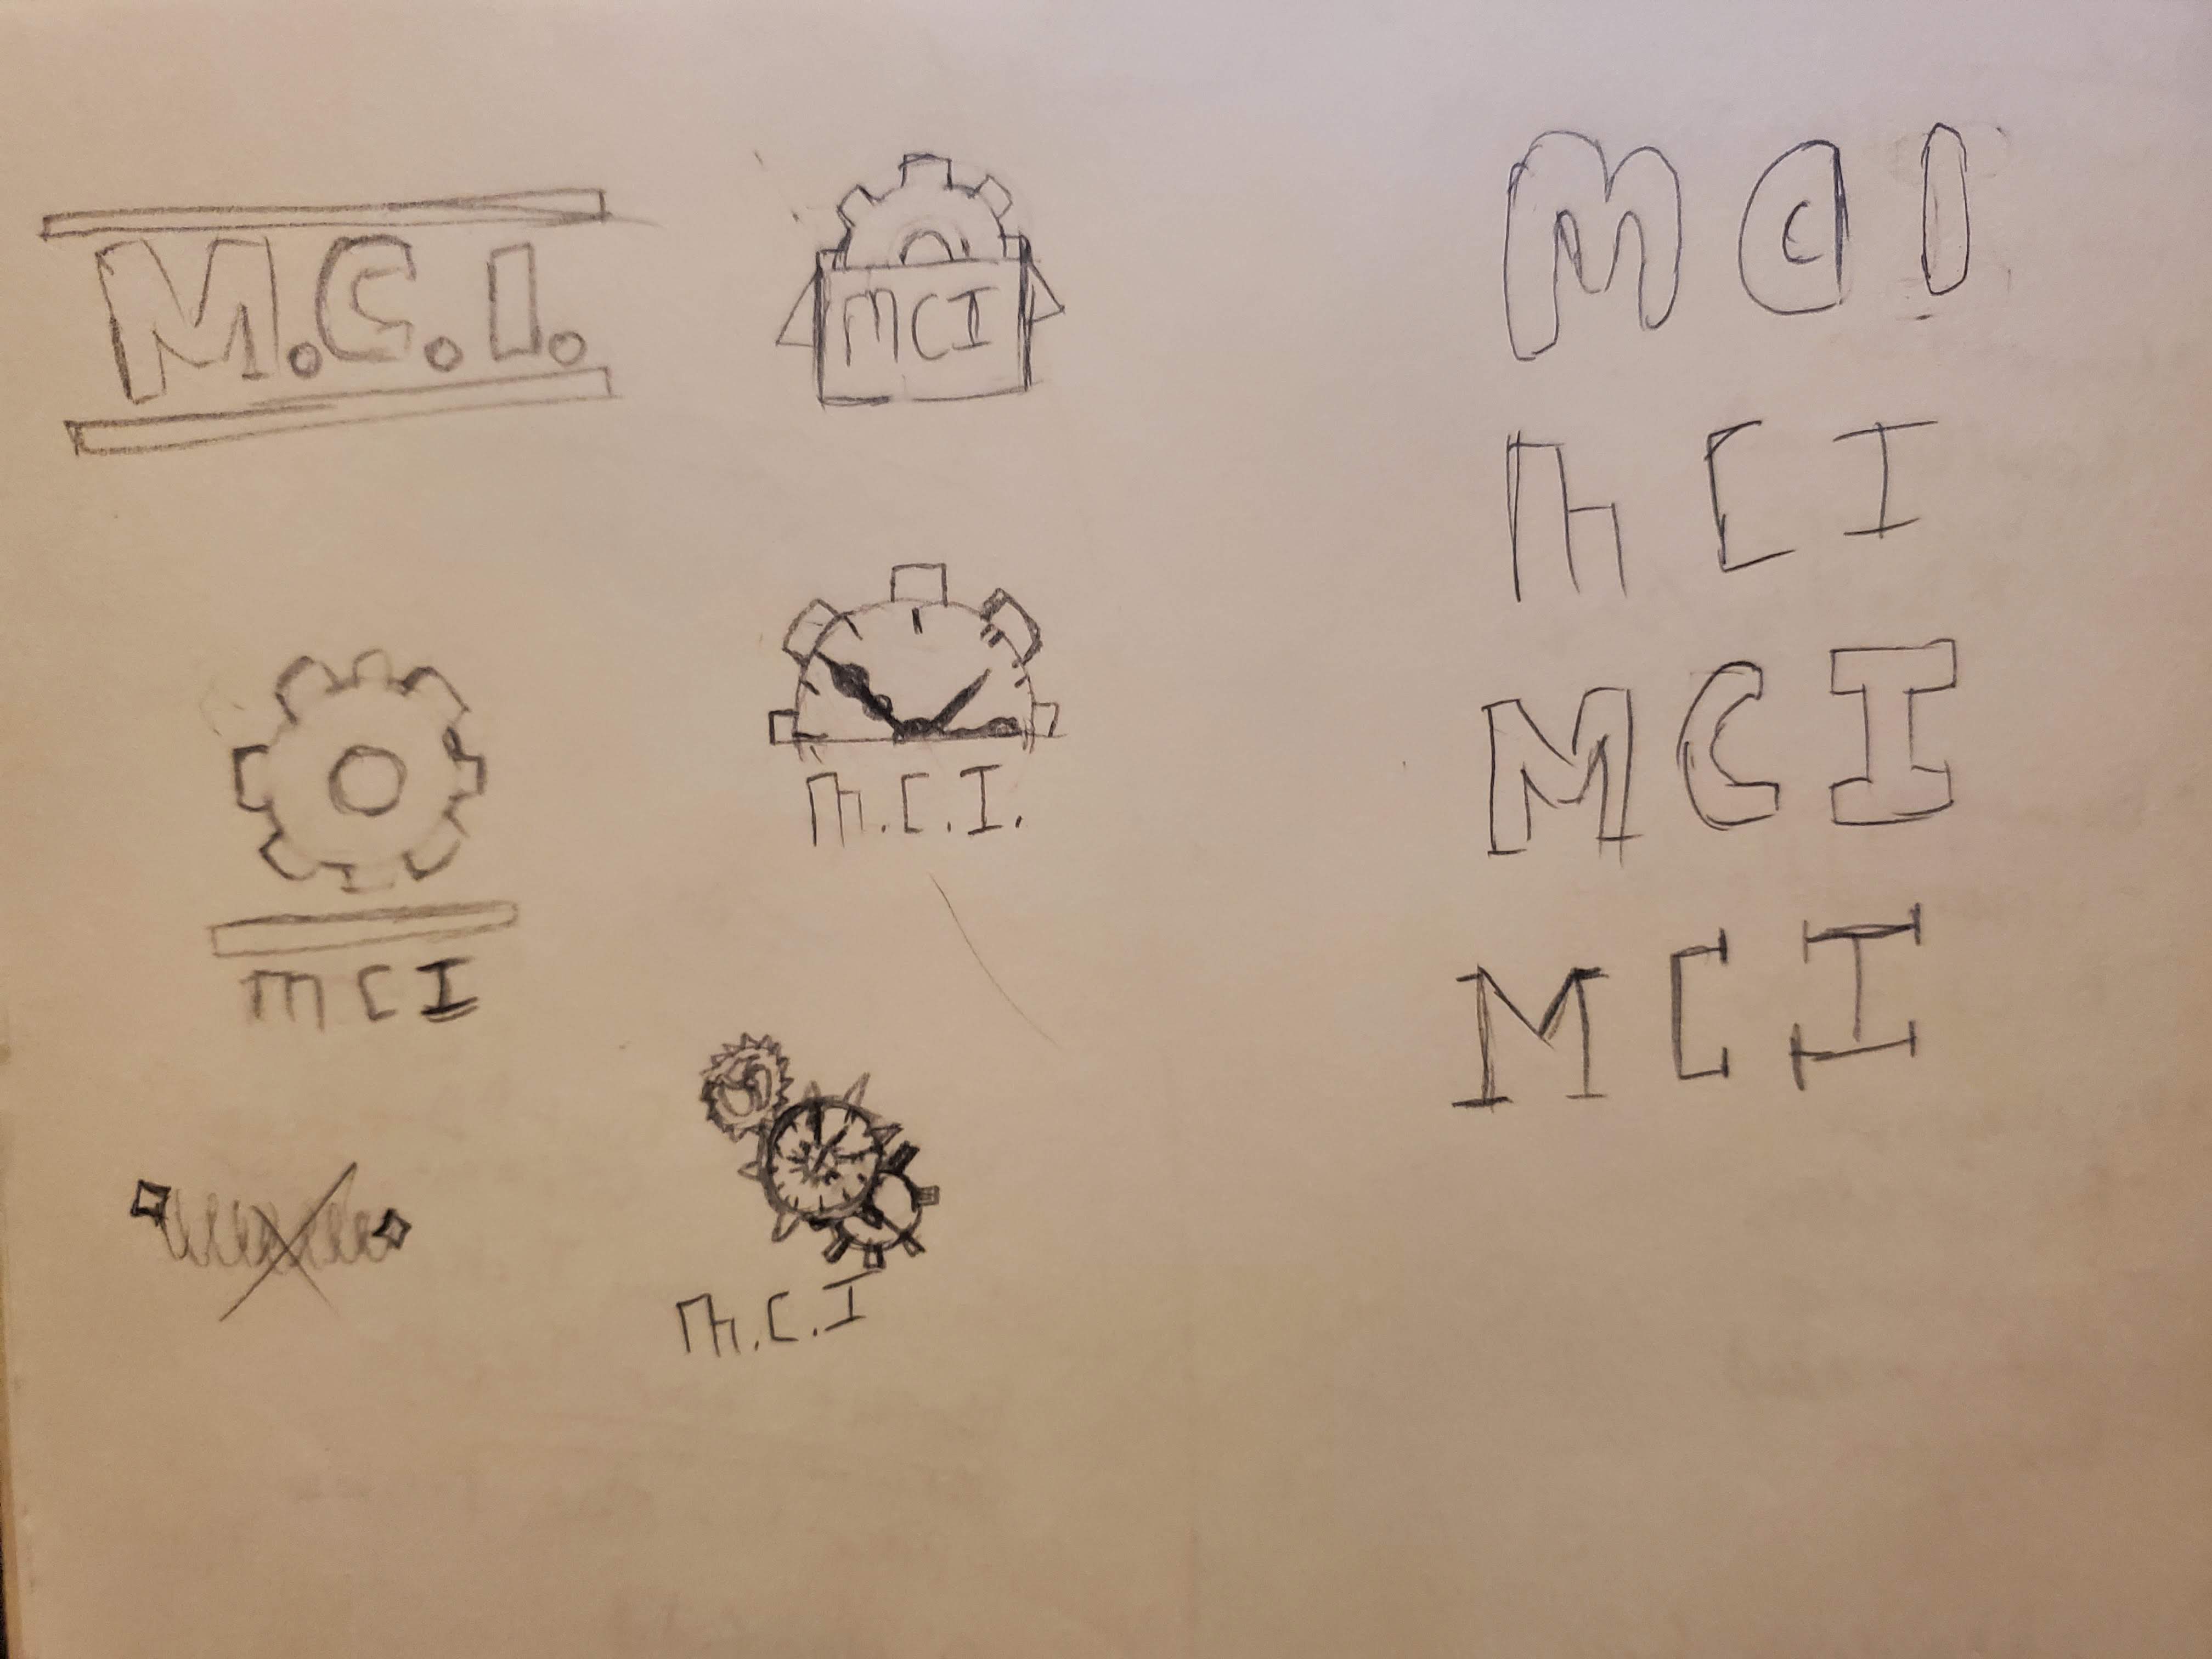 M.C.I.
MCI
MCI
M.C.I.
M.C.I
MCI
MCI
MCI
MCI